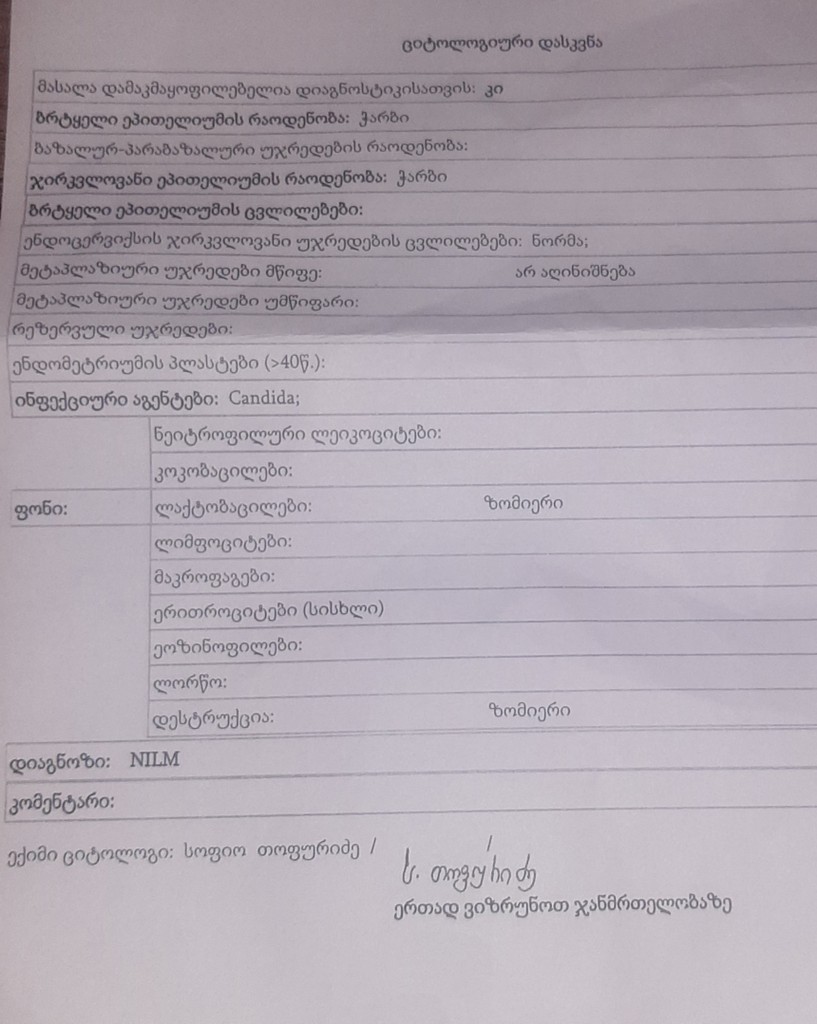 ციტოლოგიური დასკვნა
მასალა დამაკმაყოფილებელია დიაგნოსტიკისათვის: კი
ბრტყელი ეპითელიუმის რაოდენობა: ჭარბი
ბაზალურ-პარაბაზალური უჯრედების რაოდენობა:
ჯირკვლოვანი ეპითელიუმის რაოდენობა: ჭარბი
ბრტყელი ეპითელიუმის ცვლილებები:
ენდოცერვიქსის ჯირკვლოვანი უჯრედების ცვლილებები: ნორმა;
მეტაპლაზიური უჯრედები მწიფე: არ აღინიშნება
მეტაპლაზიური უჯრედები უმწიფარი:
რეზერვული უჯრედები:
ენდომეტრიუმის პლასტები (>40წ.):
ინფექციური აგენტები: Candida;
ნეიტროფილური ლეიკოციტები:
კოკობაცილები:
ფონი: ლაქტობაცილები: ზომიერი
ლიმფოციტები:
მაკროფაგები:
ერითროციტები (სისხლი)
ეოზინოფილები:
ლორწო:
დესტრუქცია: ზომიერი
დიაგნოზი: NILM
კომენტარი:
ექიმი ციტოლოგი: სოფიო თოფურიძე /
ს. თოფურიძე
ერთად ვიზრუნოთ ჯანმრთელობაზე